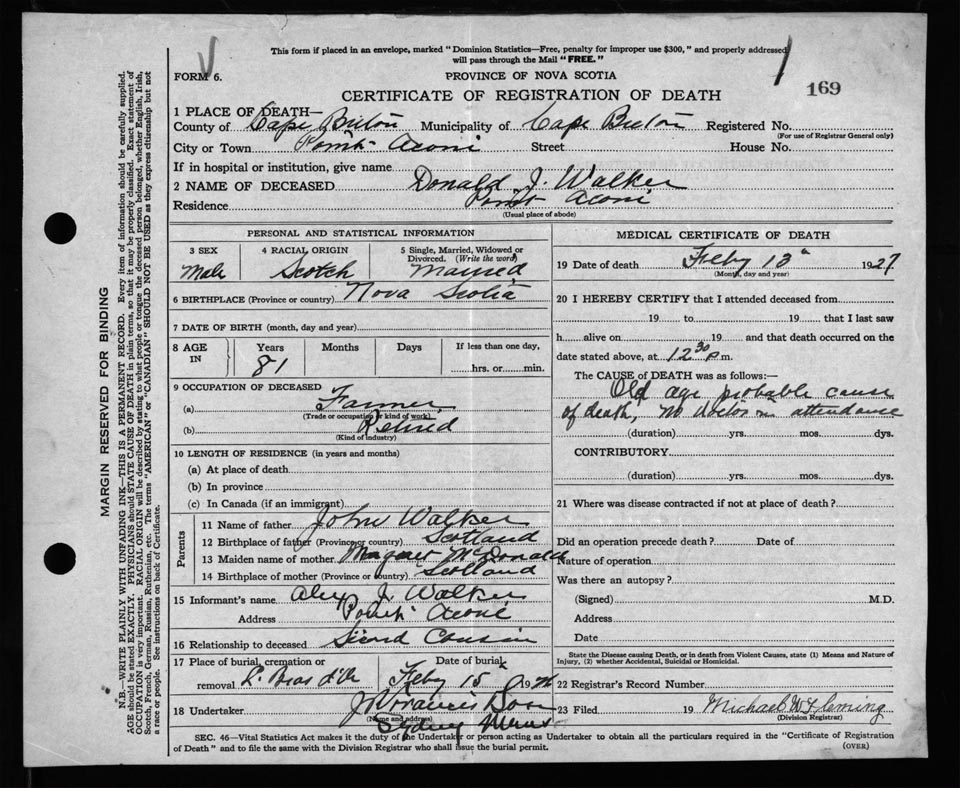 This form if placed in an envelope, marked "Dominion Statistics—Free, penalty for improper use $300," and properly addressed
will pass through the Mail "FREE."
FORM 6.
PROVINCE OF NOVA SCOTIA
169
CERTIFICATE OF REGISTRATION OF DEATH
1 PLACE OF DEATH—
County of Cape Breton Municipality of Cape Breton Registered No.
(For use of Registrar General only)
City or Town Point Aconi Street House No.
If in hospital or institution, give name
2 NAME OF DECEASED Donald J. Walker
Residence Point Aconi
(Usual place of abode)
PERSONAL AND STATISTICAL INFORMATION
3 SEX 4 RACIAL ORIGIN 5 Single, Married, Widowed or
Divorced. (Write the word)
Male Scotch Married
6 BIRTHPLACE (Province or country) Nova Scotia
7 DATE OF BIRTH (month, day and year)
8 AGE IN Years Months Days If less than one day,
81 hrs. or min.
9 OCCUPATION OF DECEASED
(a) Farmer
(Trade or occupation or kind of work)
(b) Retired
(Kind of industry)
10 LENGTH OF RESIDENCE (in years and months)
(a) At place of death
(b) In province
(c) In Canada (if an immigrant)
Parents
11 Name of father John Walker
12 Birthplace of father (Province or country) Scotland
13 Maiden name of mother Margaret McDonald
14 Birthplace of mother (Province or country) Scotland
15 Informant's name Alex J. Walker
Address Point Aconi
16 Relationship to deceased Second Cousin
17 Place of burial, cremation or Date of burial
removal L. Bras d'Or Feby 15 19
18 Undertaker
(Name and address)
Sydney Mines
MEDICAL CERTIFICATE OF DEATH
19 Date of death Feby 13 1927
(Month, day and year)
20 I HEREBY CERTIFY that I attended deceased from
19 to 19 that I last saw
h alive on 19 and that death occurred on the
date stated above, at 12 30 p m.
The CAUSE of DEATH was as follows:—
Old age probable cause
of death, no doctor in attendance
(duration) yrs. mos. dys.
CONTRIBUTORY
(duration) yrs. mos. dys.
21 Where was disease contracted if not at place of death?
Did an operation precede death? Date of
Nature of operation
Was there an autopsy?
(Signed) M.D.
Address
Date
State the Disease causing Death, or in death from Violent Causes, state (1) Means and Nature of
Injury, (2) whether Accidental, Suicidal or Homicidal.
22 Registrar's Record Number
23 Filed 19 Michael W Fleming
(Division Registrar)
SEC. 46—Vital Statistics Act makes it the duty of the Undertaker or person acting as Undertaker to obtain all the particulars required in the "Certificate of Registration
of Death" and to file the same with the Division Registrar who shall issue the burial permit.
(OVER)
MARGIN RESERVED FOR BINDING
N.B.—WRITE PLAINLY WITH UNFADING INK—THIS IS A PERMANENT RECORD. Every item of information should be carefully supplied.
AGE should be stated EXACTLY. PHYSICIANS should STATE CAUSE OF DEATH in plain terms, so that it may be properly classified. Exact statement of
OCCUPATION is very important. RACIAL ORIGIN will be described by stating to what people or tongue the deceased person belonged, whether English, Irish,
Scotch, French, German, Russian, Ruthenian, etc. The terms "AMERICAN" or "CANADIAN" SHOULD NOT BE USED as they express citizenship but not
a race or people. See instructions on back of Certificate.